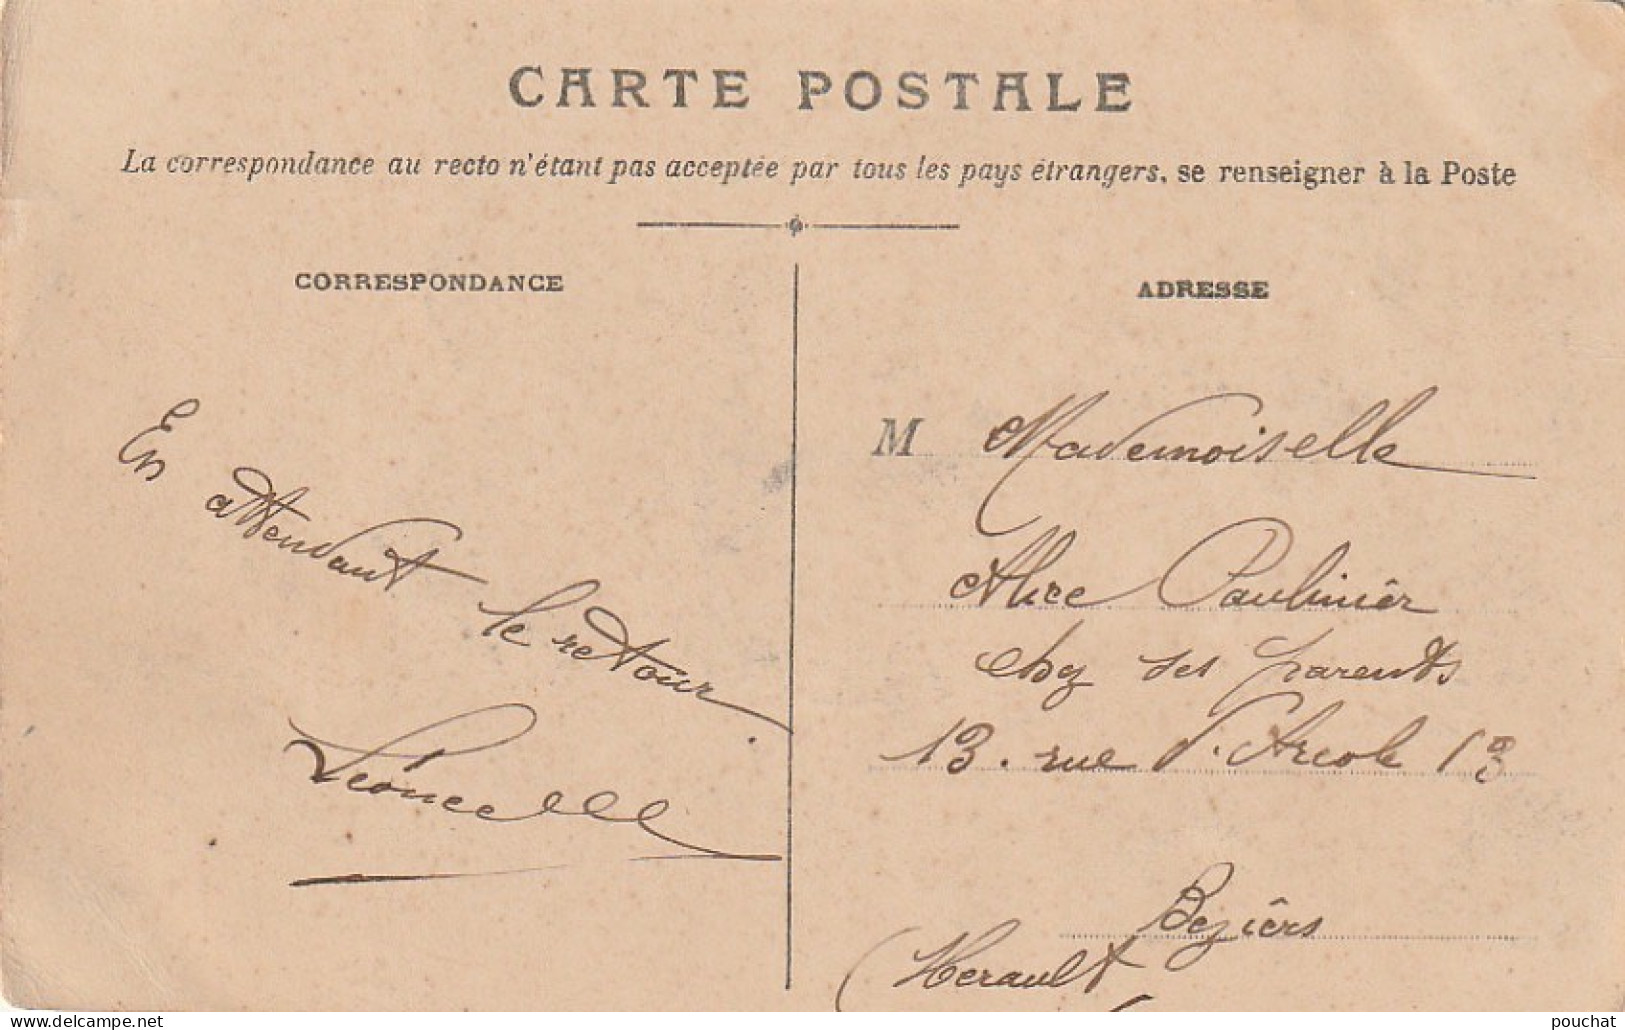 CARTE POSTALE
La correspondance au recto n'étant pas acceptée par tous les pays étrangers, se renseigner à la Poste
CORRESPONDANCE
En
attendant
le retour
ADRESSE
M Mademoiselle
Alice Paulinier
chez ses parents
13. rue d'Arcole 13
Beziêrs
(Herault)
www.delcampe.net
pouchat